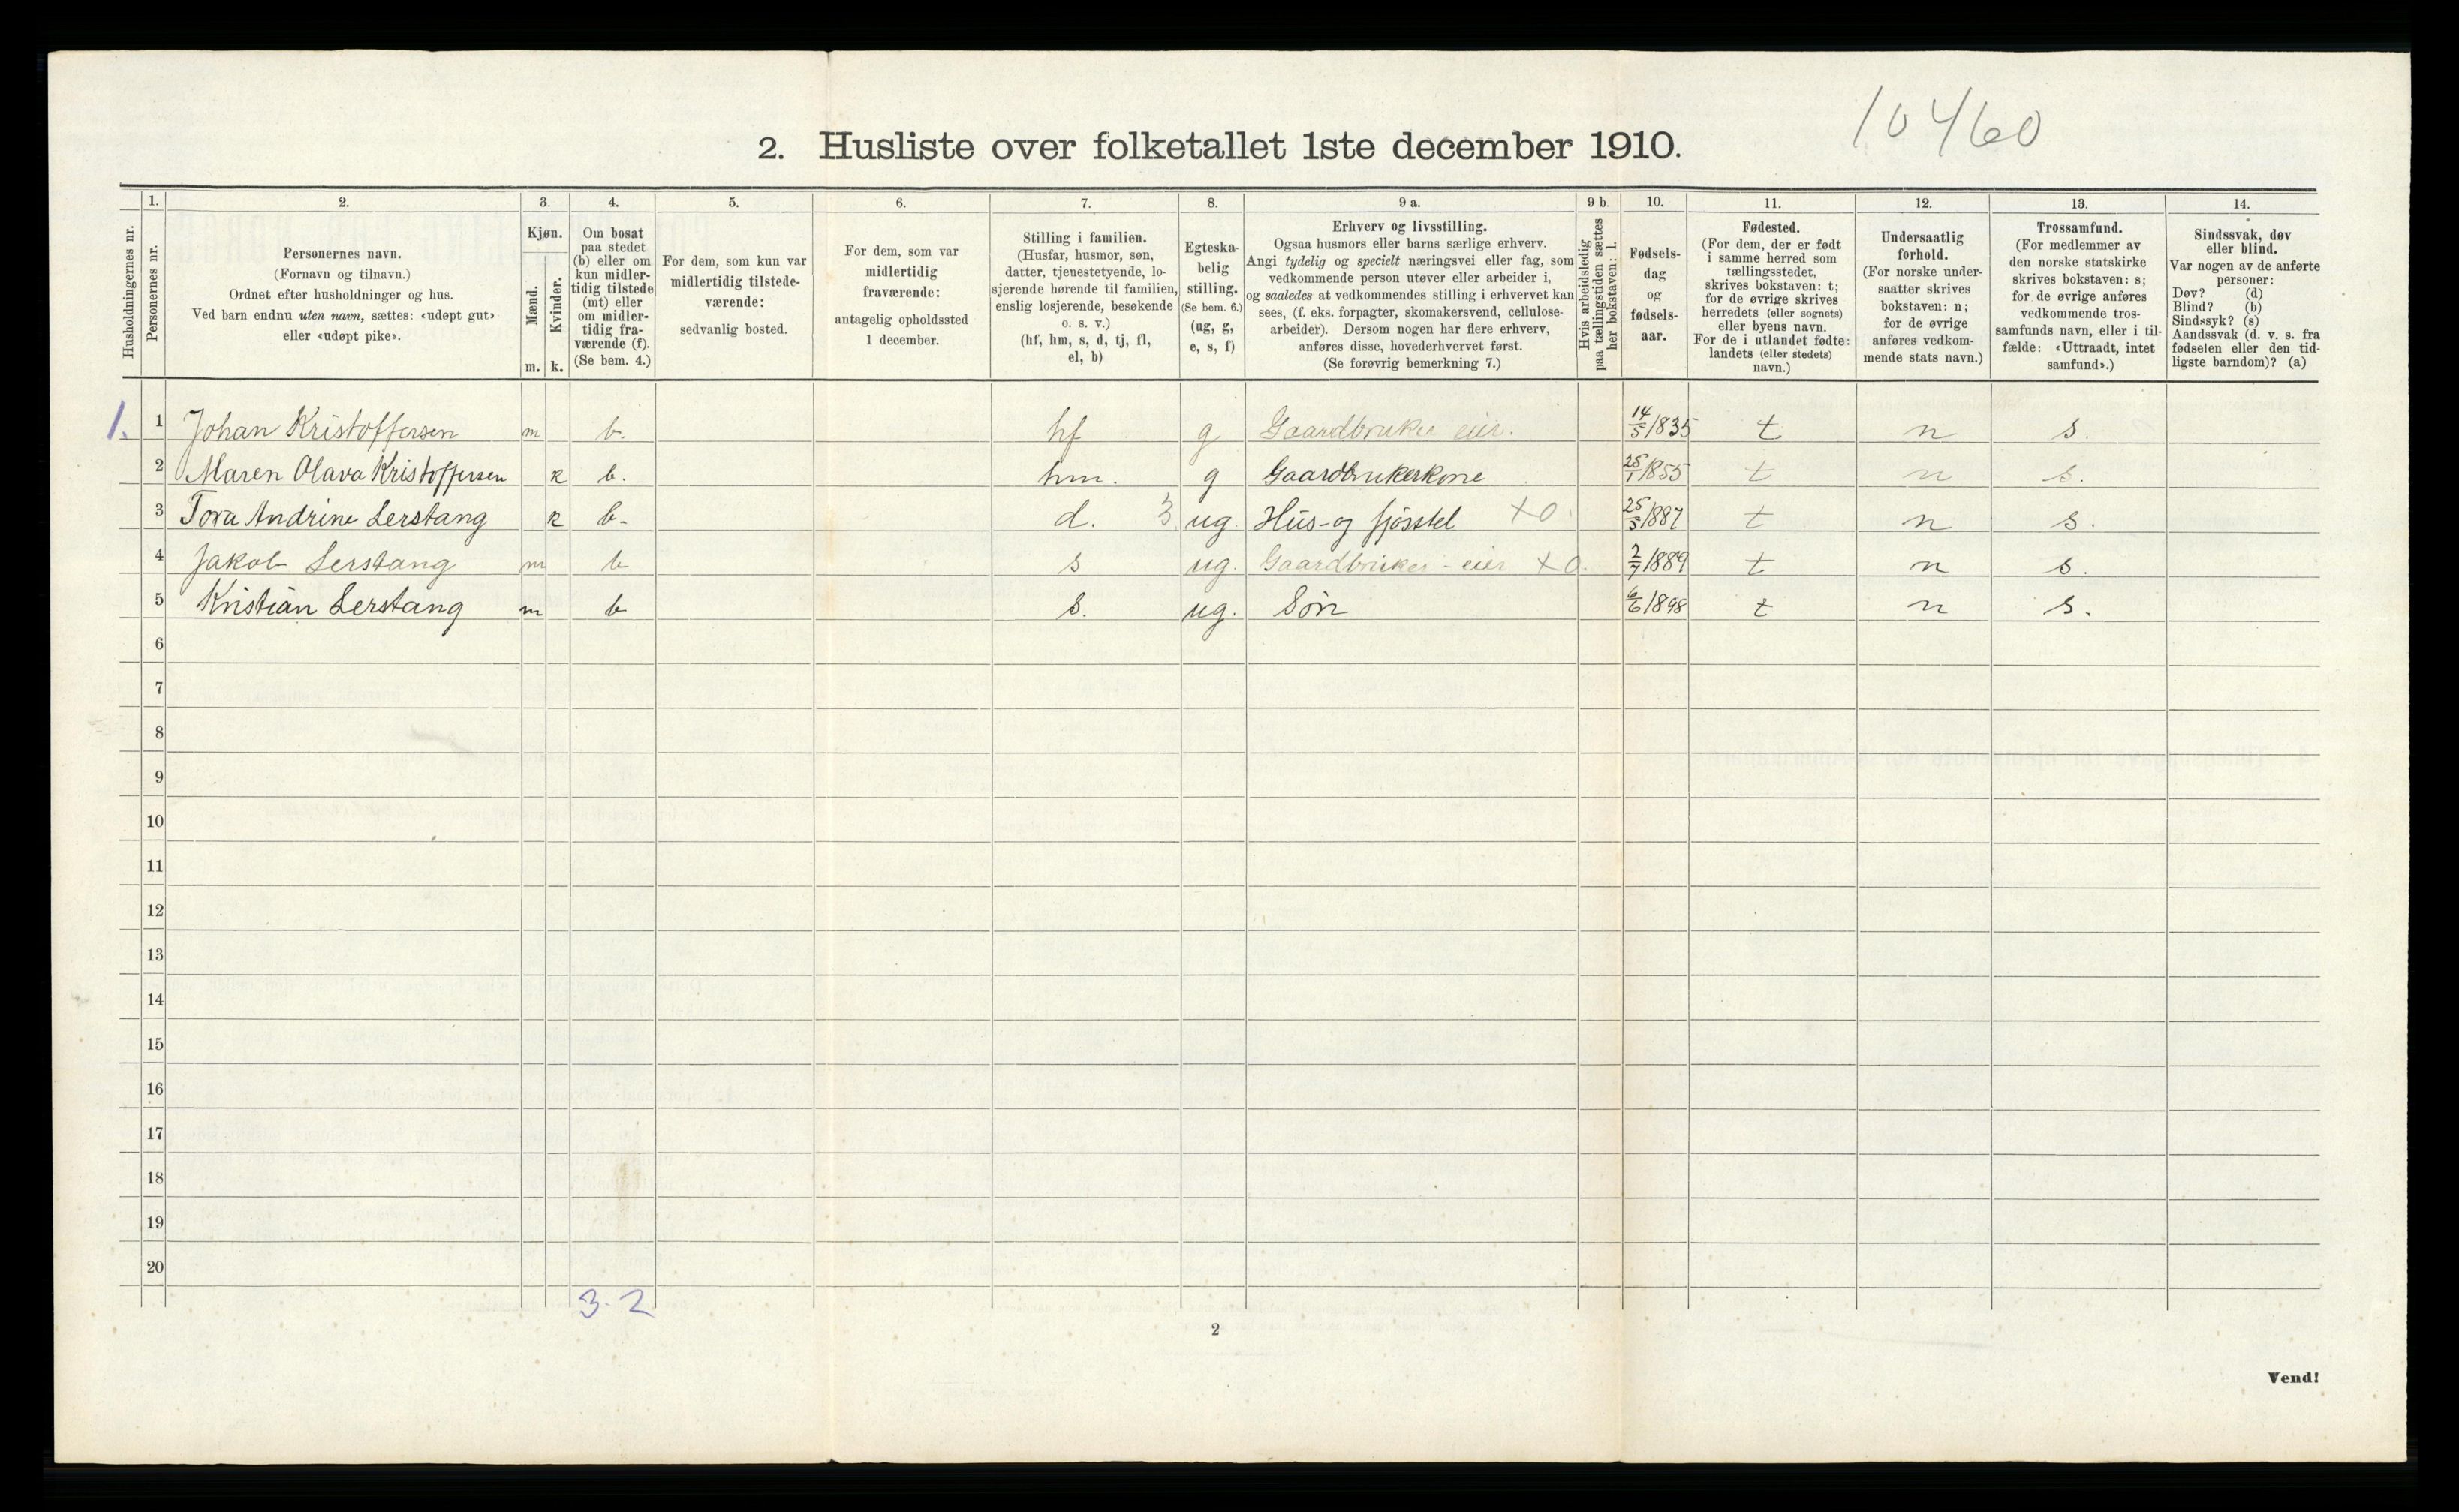 10460
2. Husliste over folketallet 1ste december 1910.
Husholdningernes nr.
1. 2. 3. 4. 5. 6. 7. 8. 9 a. 9 b. 10. 11. 12. 13. 14.
Personernes nr.
Personernes navn.
(Fornavn og tilnavn.)
Ordnet efter husholdninger og hus.
Ved barn endnu uten navn, sættes: «udøpt gut»
eller «udøpt pike».
Kjøn.
Mænd.
Kvinder.
m. k.
Om bosat
paa stedet
(b) eller om
kun midler-
tidig tilstede
(mt) eller
om midler-
tidig fra-
værende (f).
(Se bem. 4.)
For dem, som kun var
midlertidig tilstede-
værende:
sedvanlig bosted.
For dem, som var
midlertidig
fraværende:
antagelig opholdssted
1 december.
Stilling i familien.
(Husfar, husmor, søn,
datter, tjenestetyende, lo-
sjerende hørende til familien,
enslig losjerende, besøkende
o. s. v.)
(hf, hm, s, d, tj, fl,
el, b)
Egteska-
belig
stilling.
(Se bem. 6.)
(ug, g,
e, s, f)
Erhverv og livsstilling.
Ogsaa husmors eller barns særlige erhverv.
Angi tydelig og specielt næringsvei eller fag, som
vedkommende person utøver eller arbeider i,
og saaledes at vedkommendes stilling i erhvervet kan
sees, (f. eks. forpagter, skomakersvend, cellulose-
arbeider). Dersom nogen har flere erhverv,
anføres disse, hovederhvervet først.
(Se forøvrig bemerkning 7.)
Hvis arbeidsledig
paa tællingstiden sættes
her bokstaven: l.
Fødsels-
dag
og
fødsels-
aar.
Fødested.
(For dem, der er født
i samme herred som
tællingsstedet,
skrives bokstaven: t;
for de øvrige skrives
herredets (eller sognets)
eller byens navn.
For de i utlandet fødte:
landets (eller stedets)
navn.)
Undersaatlig
forhold.
(For norske under-
saatter skrives
bokstaven: n;
for de øvrige
anføres vedkom-
mende stats navn.)
Trossamfund.
(For medlemmer av
den norske statskirke
skrives bokstaven: s;
for de øvrige anføres
vedkommende tros-
samfunds navn, eller i til-
fælde: «Uttraadt, intet
samfund».)
Sindssvak, døv
eller blind.
Var nogen av de anførte
personer:
Døv? (d)
Blind? (b)
Sindssyk? (s)
Aandssvak (d. v. s. fra
fødselen eller den tid-
ligste barndom)? (a)
1. 1 Johan Kristoffersen m b. hf g Gaardbruker eier. 14/5 1835 t n s.
2 Maren Olava Kristoffersen k b. hm. g Gaardbrukerkone 25/1 1855 t n s.
3 Tora Andrine Lerstang k b. d. 3 ug. Hus- og fjøsstel X0. 25/5 1887 t n s.
4 Jakob Lerstang m b s ug. Gaardbruker-eier X0. 2/7 1889 t n s.
5 Kristian Lerstang m b s. ug. Søn 6/6 1898 t n s.
6
7
8
9
10
11
12
13
14
15
16
17
18
19
20
3. 2
2
Vend!